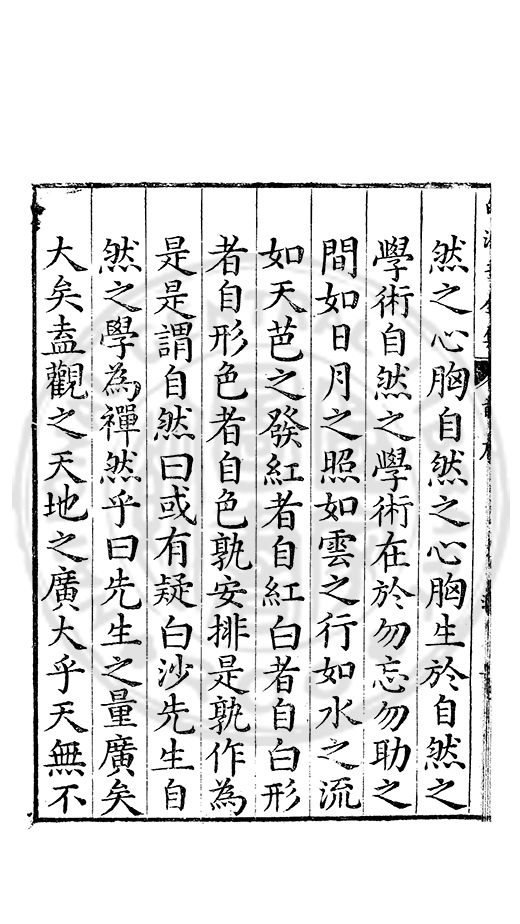 然之心胸自然之心胸生於自然之
學術自然之學術在於勿忘勿助之
間如日月之照如雲之行如水之流
如天芭之發紅者自紅白者自白形
者自形色者自色孰安排是孰作為
是是謂自然曰或有疑白沙先生自
然之學為禪然乎曰先生之量廣矣
大矣盍觀之天地之廣大乎天無不